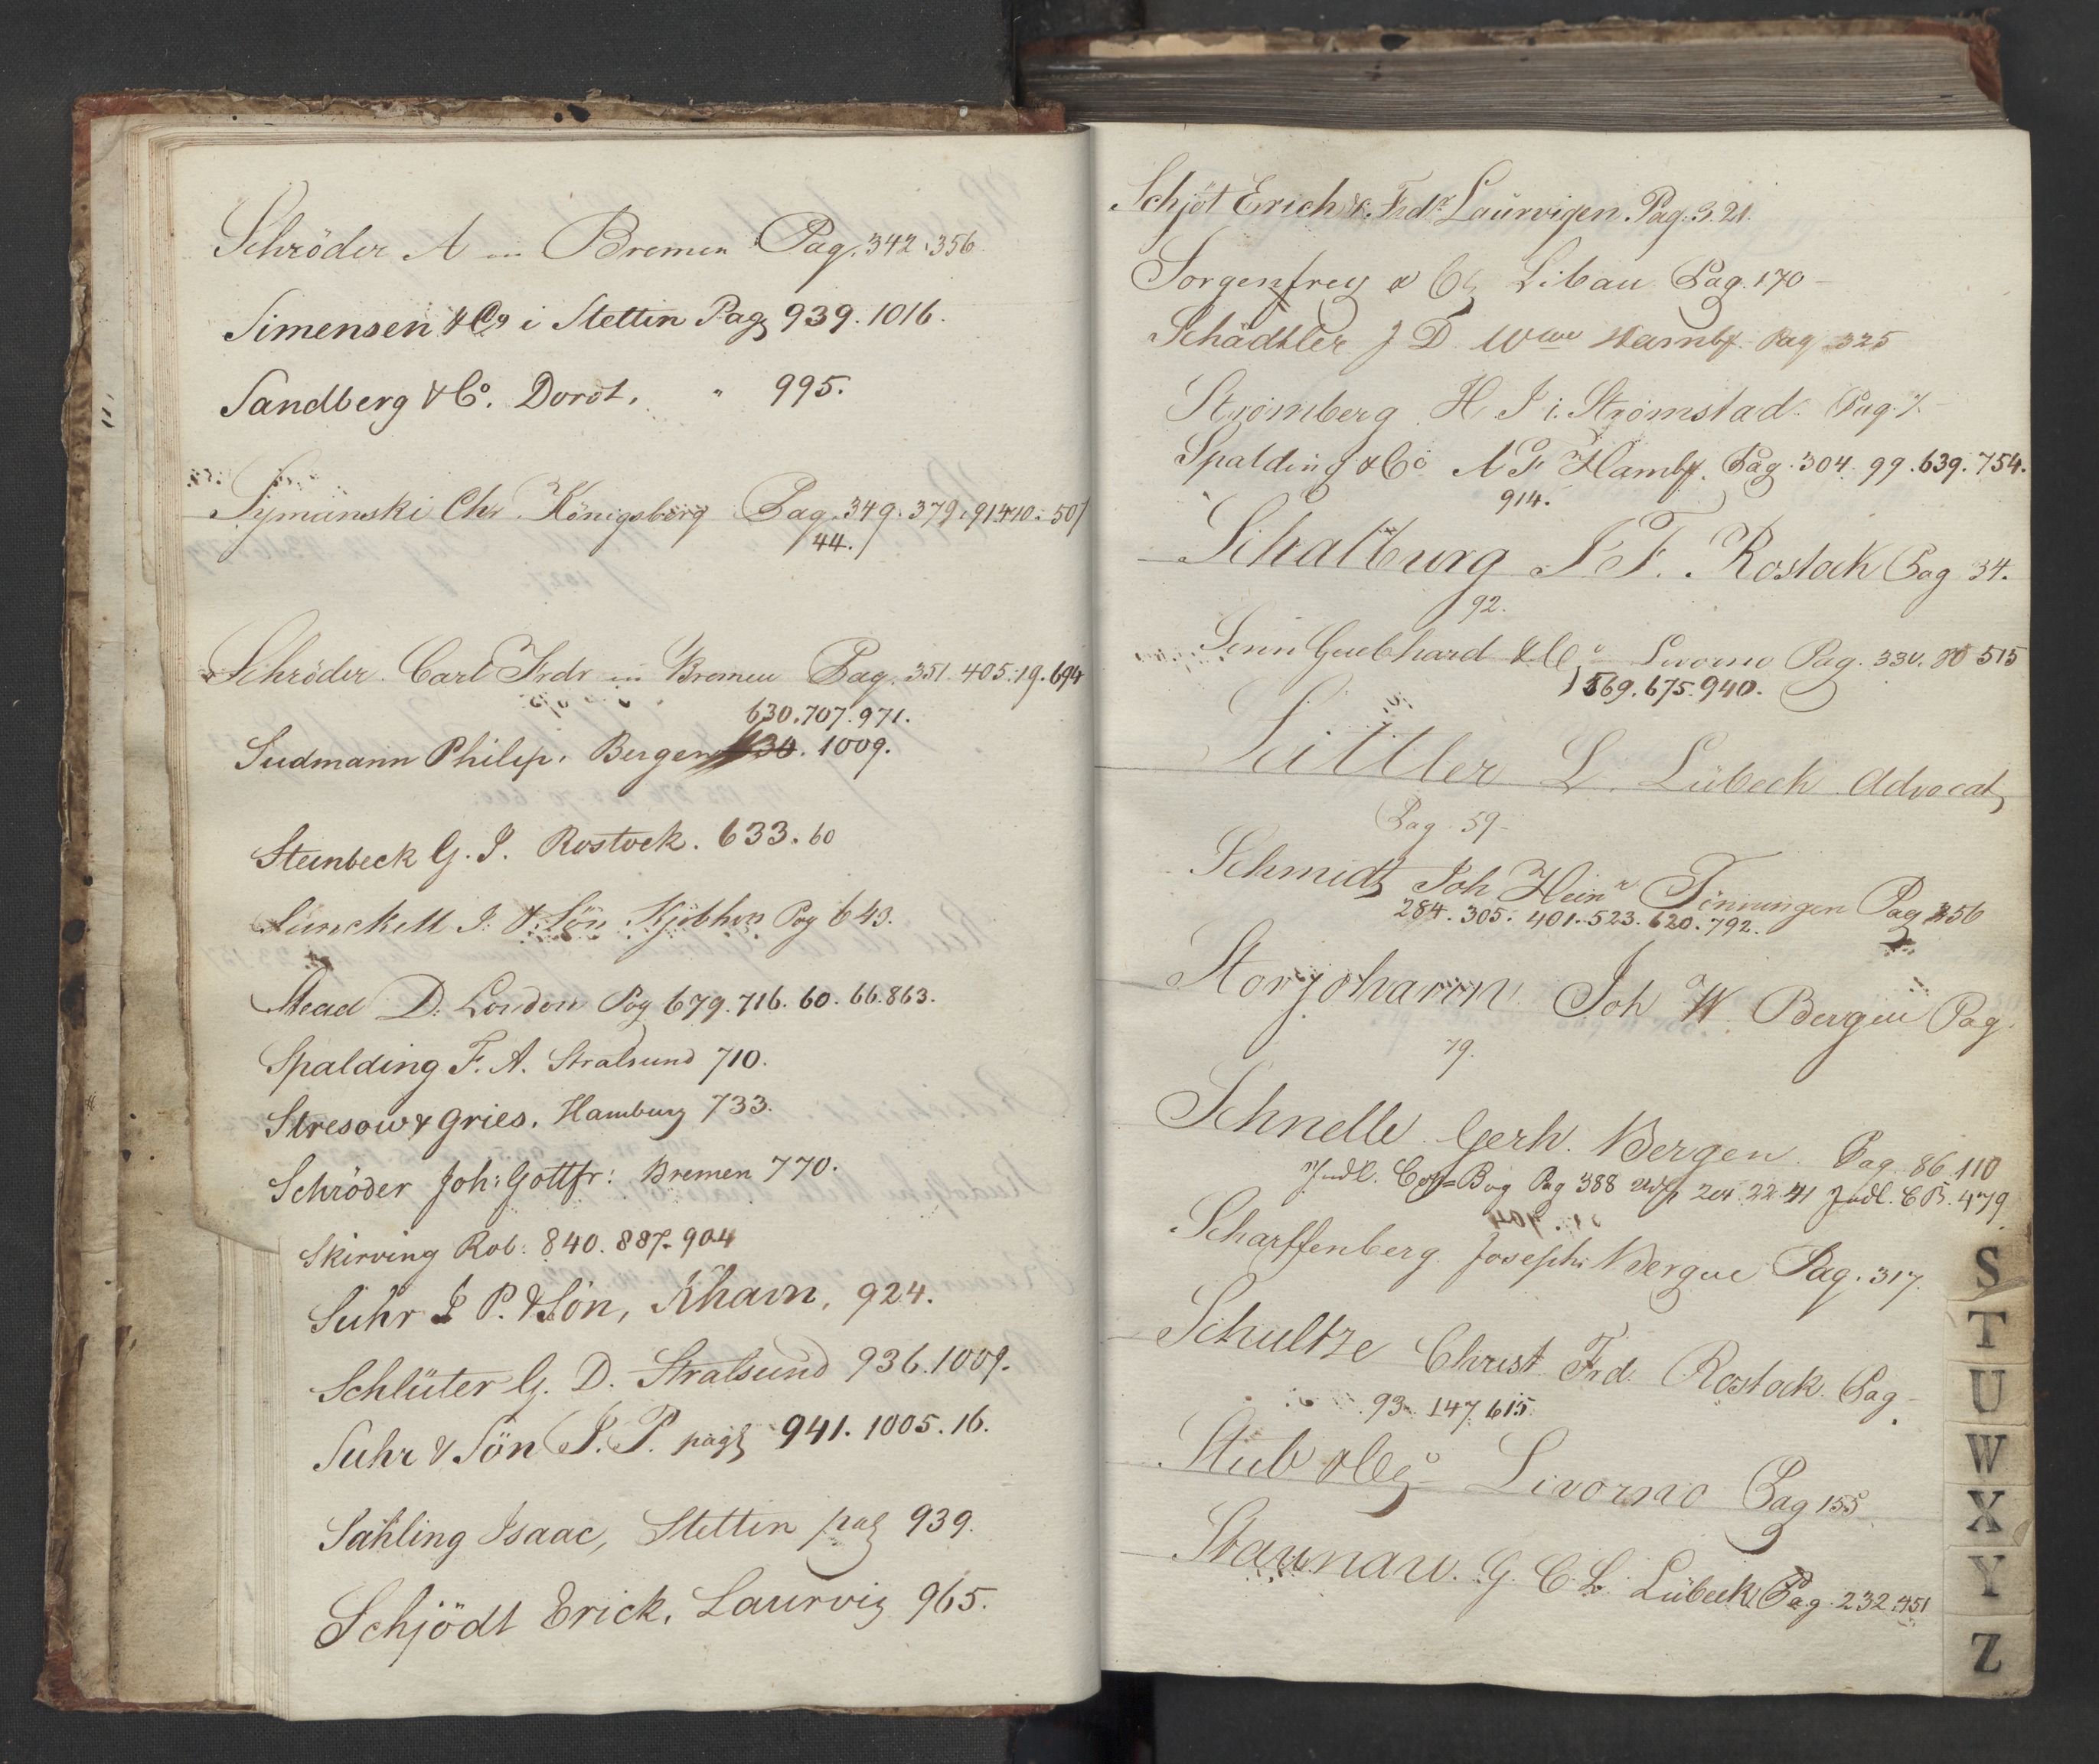 Schröder A in Bremen Pag. 342. 356.
Simensen & Co i Stettin Pag 939. 1016.
Sandberg & Co. Doròt. " 995.
Symanski Chr. Königsberg Pag. 349. 379. 91. 410. 507
44.
Schröder Carl Frdr in Bremen Pag. 351. 405. 19. 694
630. 707. 971.
Sudmann Philip. Bergen 1009.
Steinbeck G. J. Rostock. 633. 60
J. & Sön Kjöbhvn Pag 643.
Stead D. London Pag 679. 716. 60. 66. 863.
Spalding F. A. Stralsund 710.
Stresow & Gries. Hamburg 733.
Schröder Joh: Gottfr: Bremen 770.
Skirving Rob: 840. 887. 904
Suhr J P. & Sön, Khavn, 924.
Schlüter G. D. Stralsund 936. 1009.
Suhr & Sön J. P. pag 941. 1005. 16.
Sahling Isaac, Stettin pag 939.
Schjödt Erick, Laurvig 965.
Schjöt Erich & Frdr Laurvigen. Pag. 3. 21.
Sorgenfrey & Co Libau Pag. 170 -
Schädtler J D Wwe Hambg Pag 325
Strömberg H J i. Strömstad. Pag. 7. -
Spalding & Co A F Hambg. Pag. 304. 99. 639. 754.
914.
Schalburg F F. Rostock Pag 34.
92.
Senn Guebhard & Co Livorno Pag. 330. 80 515
569. 675. 940.
Sittler L. Lübeck Advocat
Pag 59 -
Schmidt Joh Heinr Tönningen Pag 256
284. 305. 401. 523. 620. 792.
Storjohann Joh W Bergen Pag.
79.
Schnelle Gerh. Bergen. Pag. 86. 110
Indl. Cop=Bog Pag 388 204. 22. 41 Indl. C B. 479
Scharffenberg Joseph: Bergen Pag. 317.
Schultze Christ Frd. Rostock. Pag -
93. 147. 615.
Stub & Co Livorno Pag 155
Staunau. G. C. L. Lübeck Pag. 232. 451
S
T
U
W
X
Y
Z